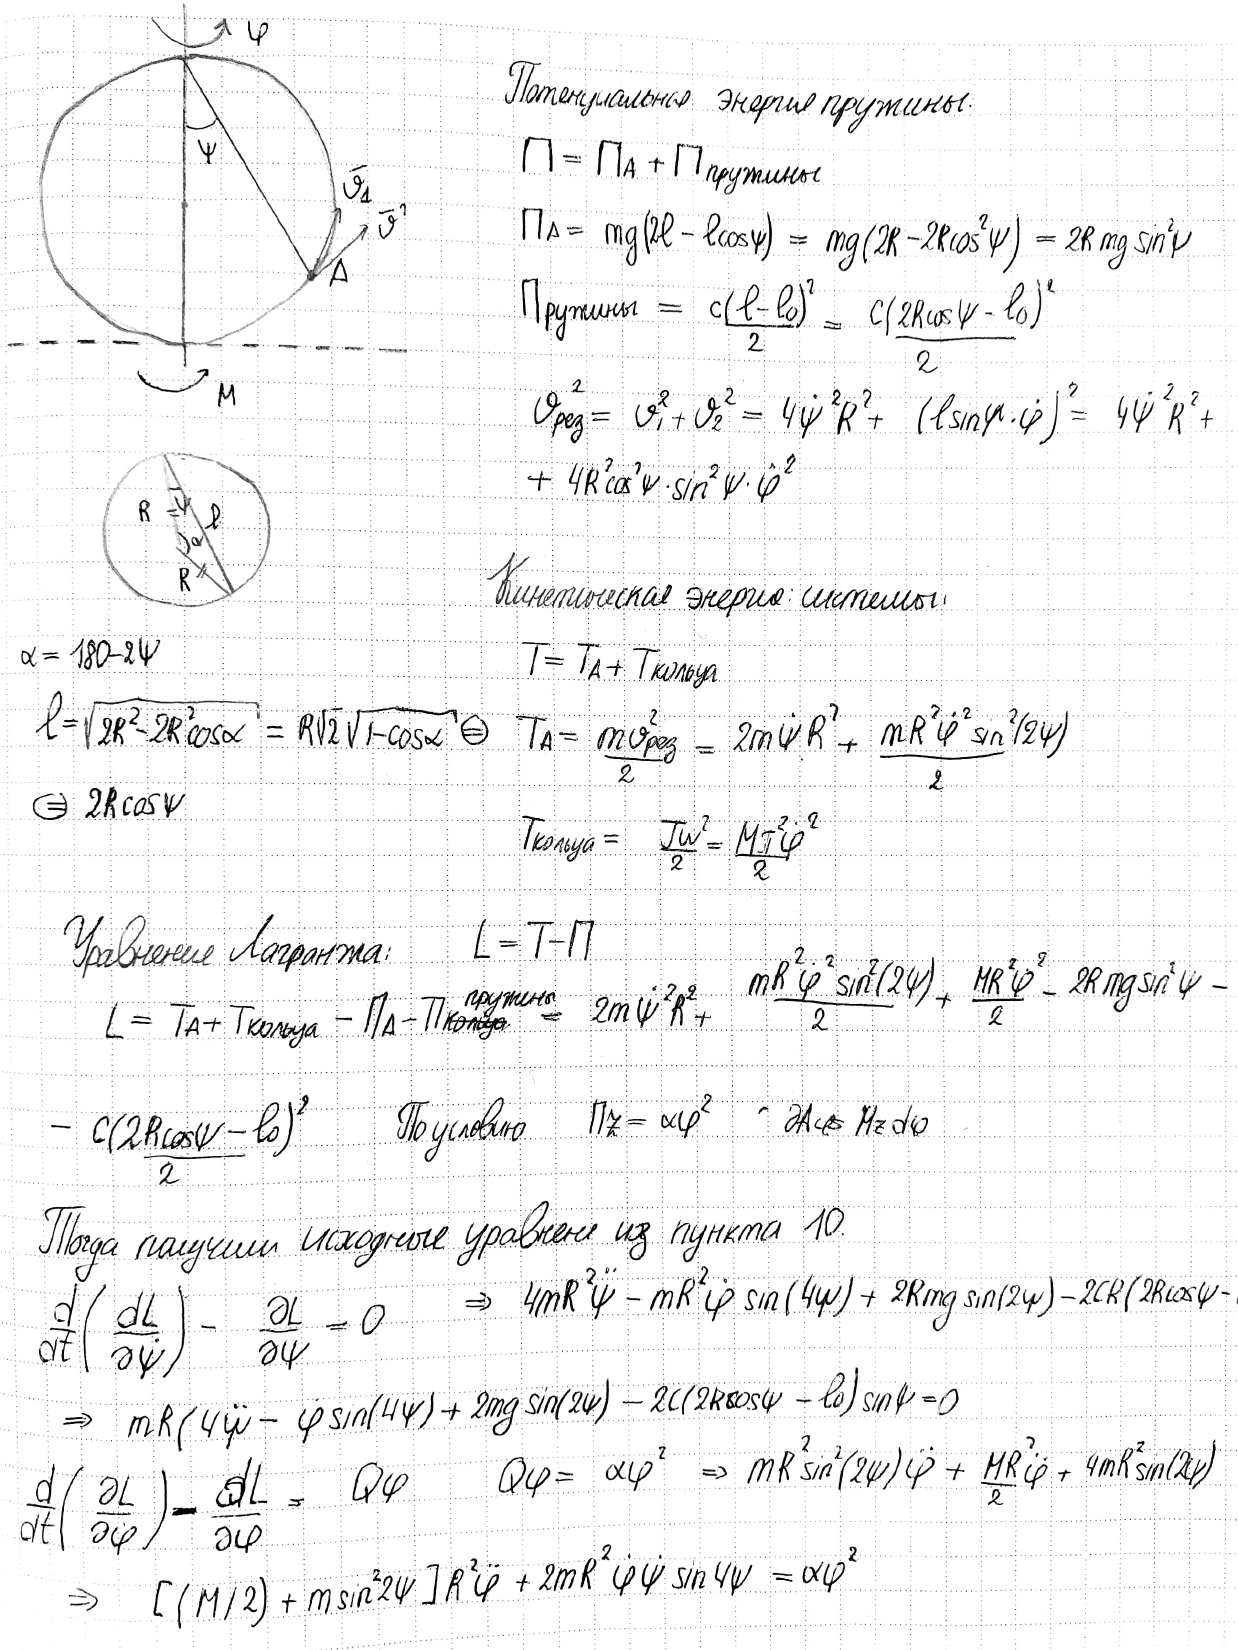 φ
Потенциальная энергия пружины.
П = П_A + П_пружины
ψ
v̄_1
v̄
A
П_A = mg(2l - lcosψ) = mg(2R - 2Rcos²ψ) = 2Rmg sin²ψ
Пружины = c(l - l₀)²/2 = C(2Rcosψ - l₀)²/2
M
v²_рез = v₁² + v₂² = 4ψ̇²R² + (l sinψ·φ̇)² = 4ψ̇²R² +
+ 4R²cos²ψ·sin²ψ·φ̇²
R ψ l
α
R
Кинетическая энергия системы:
α = 180 - 2ψ
T = T_A + T_кольца
l = √(2R² - 2R²cosα) = R√2 √(1 - cosα) ⊜
T_A = mv²_рез/2 = 2mψ̇R² + mR²φ̇²sin²(2ψ)/2
⊜ 2Rcosψ
T_кольца = Jω²/2 = Mr²φ̇²/2
Уравнение Лагранжа: L = T - П
L = T_A + T_кольца - П_A - П_пружины = 2mψ̇²R² + mR²φ̇²sin²(2ψ)/2 + MR²φ̇²/2 - 2Rmg sin²ψ -
- C(2Rcosψ - l₀)²/2 По условию Mz = αφ² ∂A = Mz dφ
Тогда получим исходные уравнене из пункта 10.
d/dt(dL/∂ψ̇) - ∂L/∂ψ = 0 ⇒ 4mR²ψ̈ - mR²φ̇ sin(4ψ) + 2Rmg sin(2ψ) - 2CR(2Rcosψ -
⇒ mR(4ψ̈ - φ̇ sin(4ψ) + 2mg sin(2ψ) - 2C(2Rcosψ - l₀) sinψ = 0
d/dt(∂L/∂φ̇) - dL/∂φ = Qφ Qφ = αφ² ⇒ mR²sin²(2ψ)φ̈ + MR²φ̈/2 + 4mR²sin(2ψ)
⇒ [(M/2) + m sin²2ψ]R²φ̈ + 2mR²φ̇ψ̇ sin4ψ = αφ²